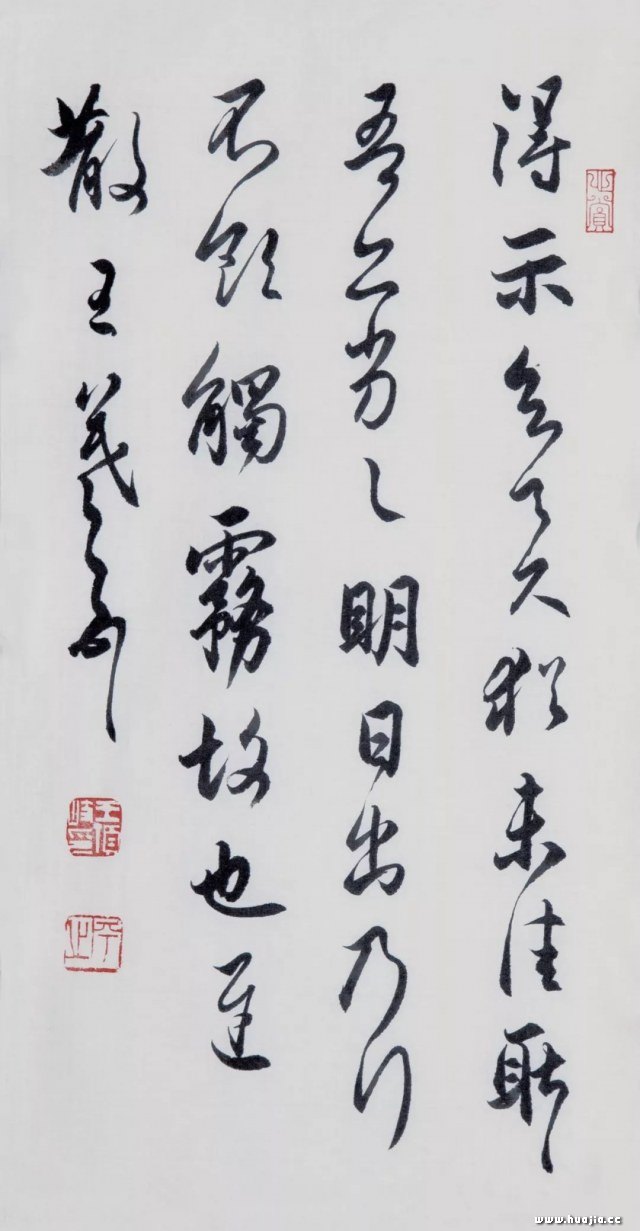 得示知足下猶未佳耿々
吾亦劣々明日出乃行
不欲觸霧故也遲
散王羲之頓首
www.huajia.cc